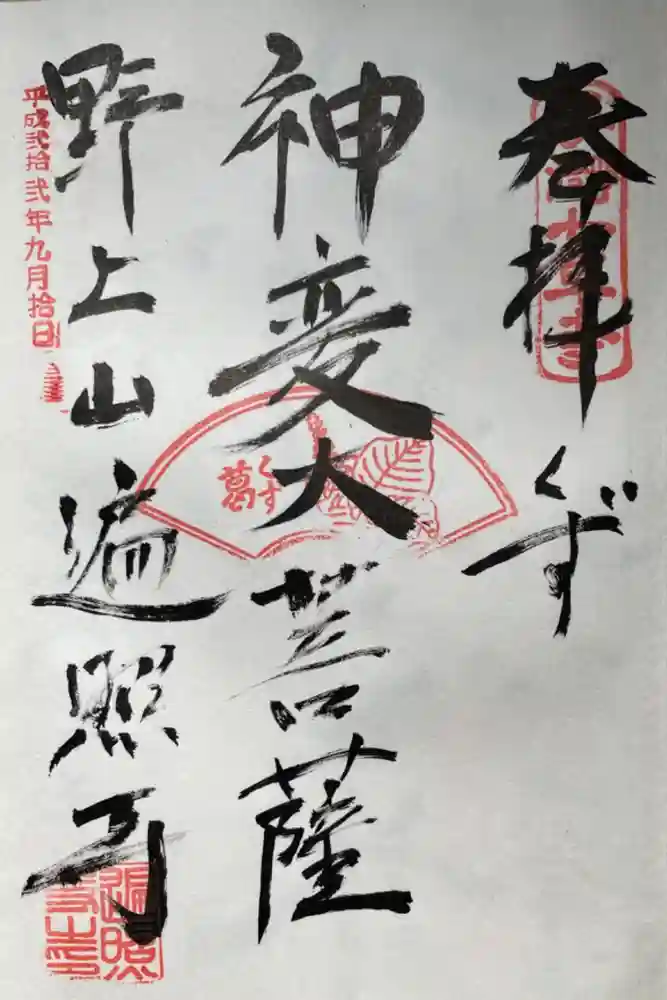 奉拝
くず
神変大菩薩
野上山
遍照寺
平成弐拾弐年九月拾日
くず
葛